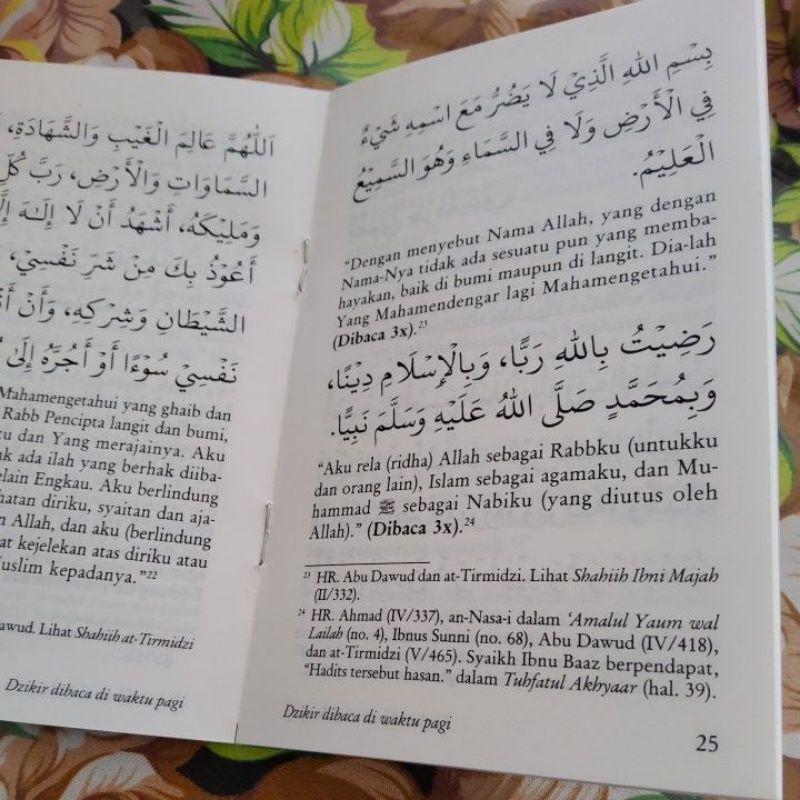 اَللّٰهُمَّ عَالِمَ الْغَيْبِ وَالشَّهَادَةِ،
السَّمَاوَاتِ وَالْأَرْضِ، رَبَّ كُلِّ
وَمَلِيْكَهُ، أَشْهَدُ أَنْ لَا إِلٰهَ
أَعُوْذُ بِكَ مِنْ شَرِّ نَفْسِيْ،
الشَّيْطَانِ وَشِرْكِهِ، وَأَنْ
نَفْسِيْ سُوْءًا أَوْ أَجُرَّهُ إِلَى
Mahamengetahui yang ghaib dan
Rabb Pencipta langit dan bumi,
tu dan Yang merajainya. Aku
ak ada ilah yang berhak diiba-
elain Engkau. Aku berlindung
hatan diriku, syaitan dan aja-
n Allah, dan aku (berlindung
at kejelekan atas diriku atau
uslim kepadanya."²²
awud. Lihat Shahiih at-Tirmidzi
Dzikir dibaca di waktu pagi
بِسْمِ اللهِ الَّذِيْ لَا يَضُرُّ مَعَ اسْمِهِ شَيْءٌ
فِي الْأَرْضِ وَلَا فِي السَّمَاءِ وَهُوَ السَّمِيْعُ
الْعَلِيْمُ.
"Dengan menyebut Nama Allah, yang dengan
Nama-Nya tidak ada sesuatu pun yang memba-
hayakan, baik di bumi maupun di langit. Dia-lah
Yang Mahamendengar lagi Mahamengetahui."
(Dibaca 3x).²³
رَضِيْتُ بِاللهِ رَبًّا، وَبِالْإِسْلَامِ دِيْنًا،
وَبِمُحَمَّدٍ صَلَّى اللهُ عَلَيْهِ وَسَلَّمَ نَبِيًّا.
"Aku rela (ridha) Allah sebagai Rabbku (untukku
dan orang lain), Islam sebagai agamaku, dan Mu-
hammad ﷺ sebagai Nabiku (yang diutus oleh
Allah)." (Dibaca 3x).²⁴
²³ HR. Abu Dawud dan at-Tirmidzi. Lihat Shahiih Ibni Majah
(II/332).
²⁴ HR. Ahmad (IV/337), an-Nasa-i dalam 'Amalul Yaum wal
Lailah (no. 4), Ibnus Sunni (no. 68), Abu Dawud (IV/418),
dan at-Tirmidzi (V/465). Syaikh Ibnu Baaz berpendapat,
"Hadits tersebut hasan." dalam Tuhfatul Akhyaar (hal. 39).
Dzikir dibaca di waktu pagi
25